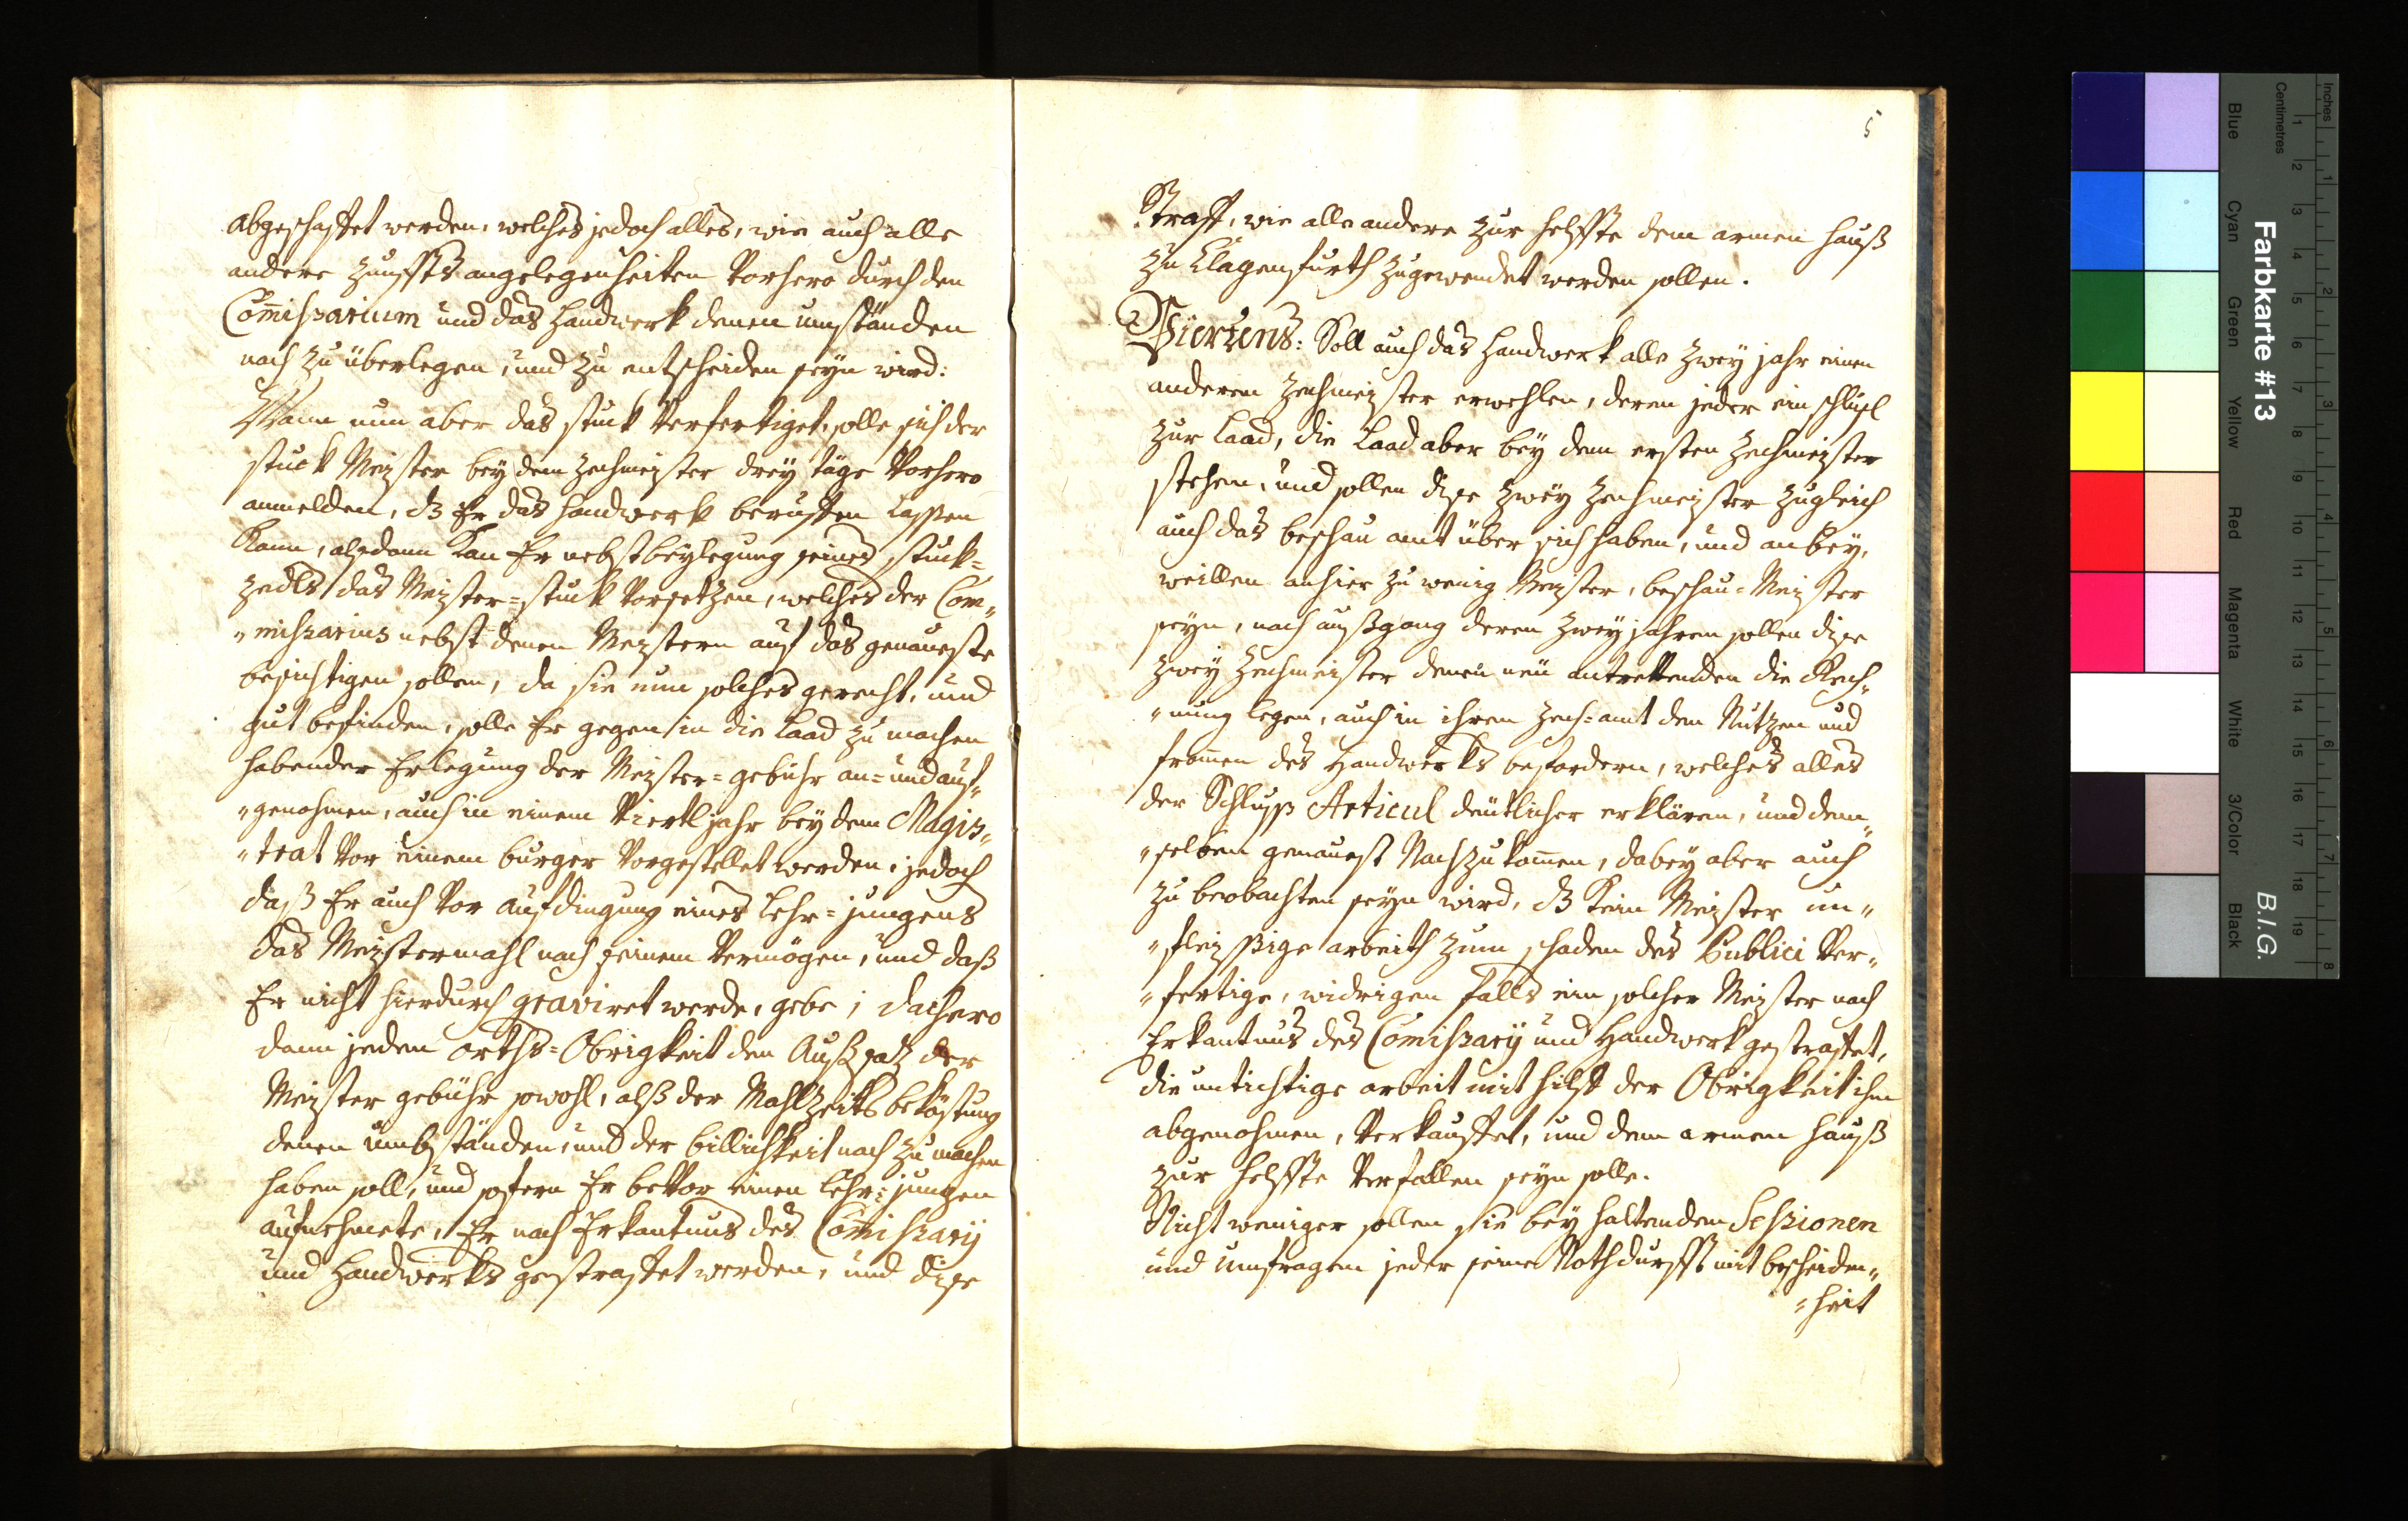 abgeschaffet werden, welches jedoch alles, wie auch alle
andere Zunffts angelegenheiten Vorhero durch den
Com̃ißarium und das Handwerk denen umständen
nach zu überlegen, und zu entscheiden seyn wird:
Wann nun aber das stuck Verfertiget, solle sich der
stuck Meister bey dem Zechmeister drey täge Vorhero
anmelden, dz Er das Handwerk beruffen lassen
Kann, alsdann Kan Er nebst beylegung seines stuck=
zedls das Meister=stuck Vorsetzen, welches der Com„
„mißarius nebst denen Meistern auf das genaueste
besichtigen sollen, da sie nun solches gerecht, und
gut befinden, solle Er gegen in die Laad zu machen
habender Erlegung der Meister=gebühr an= und auf„
„genohmen, auch in einem Viertljahr bey dem Magis„
„trat Vor einem burger Vorgestellet werden, jedoch
daß Er auch Vor Aufdingung eines Lehr=jungens
das Meistermahl nach seinem Vermögen, und daß
Er nicht hierdurch graviret werde, gebe; dachero
dann jeden orths=Obrigkeit den Außsatz der
Meister gebühr sowohl, alß der Mahlzeits beköstung
denen umbständen, und der billichkeit nach zu machen
haben soll, und sofern Er beVor einen Lehr=jungen
aufnehmete, Er nach Erkantnus des Com̃ißarÿ
und Handwerks gestraffet werden, und dise
5
Straff, wie alle andere zur helffte dem armen Hauß
zu Clagenfurth zugewendet werden sollen.
Viertens: Soll auch das Handwerk alle zwey jahr einen
anderen Zechmeister erwehlen, deren jeder ein schlüsl
zur Laad, die Laad aber bey dem ersten Zechmeister
stehen, und sollen dise zwey Zechmeister zugleich
auch das beschau amt über sich haben, und anbey,
weillen anhier zu wenig Meister, beschau=Meister
seyn, nach außgang deren zwey jahren sollen dise
zwey Zechmeister denen neu antrettenden die Rech„
„nung legen, auch in ihrem Zech=amt den Nutzen und
from̃en des Handwerks befördern, welches alles
der Schluss Articul deutlicher erklären, und dem„
„selben genauest Nachzukom̃en, dabey aber auch
zu beobachten seyn wird, dz kein Meister un„
„fleissige arbeith zum schaden des Publici Ver„
„fertige, widrigen falls ein solcher Meister nach
Erkantnus des Com̃ißarÿ und Handwerk gestraffet,
die untichtige arbeit mit hilff der Obrigkeit ihm
abgenohmen, Verkauffet, und dem armen Hauß
zur helffte Verfallen seyn solle.
Nicht weniger sollen sie bey haltenden Seßionen
und umfragen jeder seine Nothdurfft mit bescheiden„
„heit
Farbkarte #13
B.I.G.
Inches
Centimetres
1 2 3 4 5 6 7 8 9 10 11 12 13 14 15 16 17 18 19
1 2 3 4 5 6 7 8
Blue
Cyan
Green
Yellow
Red
Magenta
White
3/Color
Black